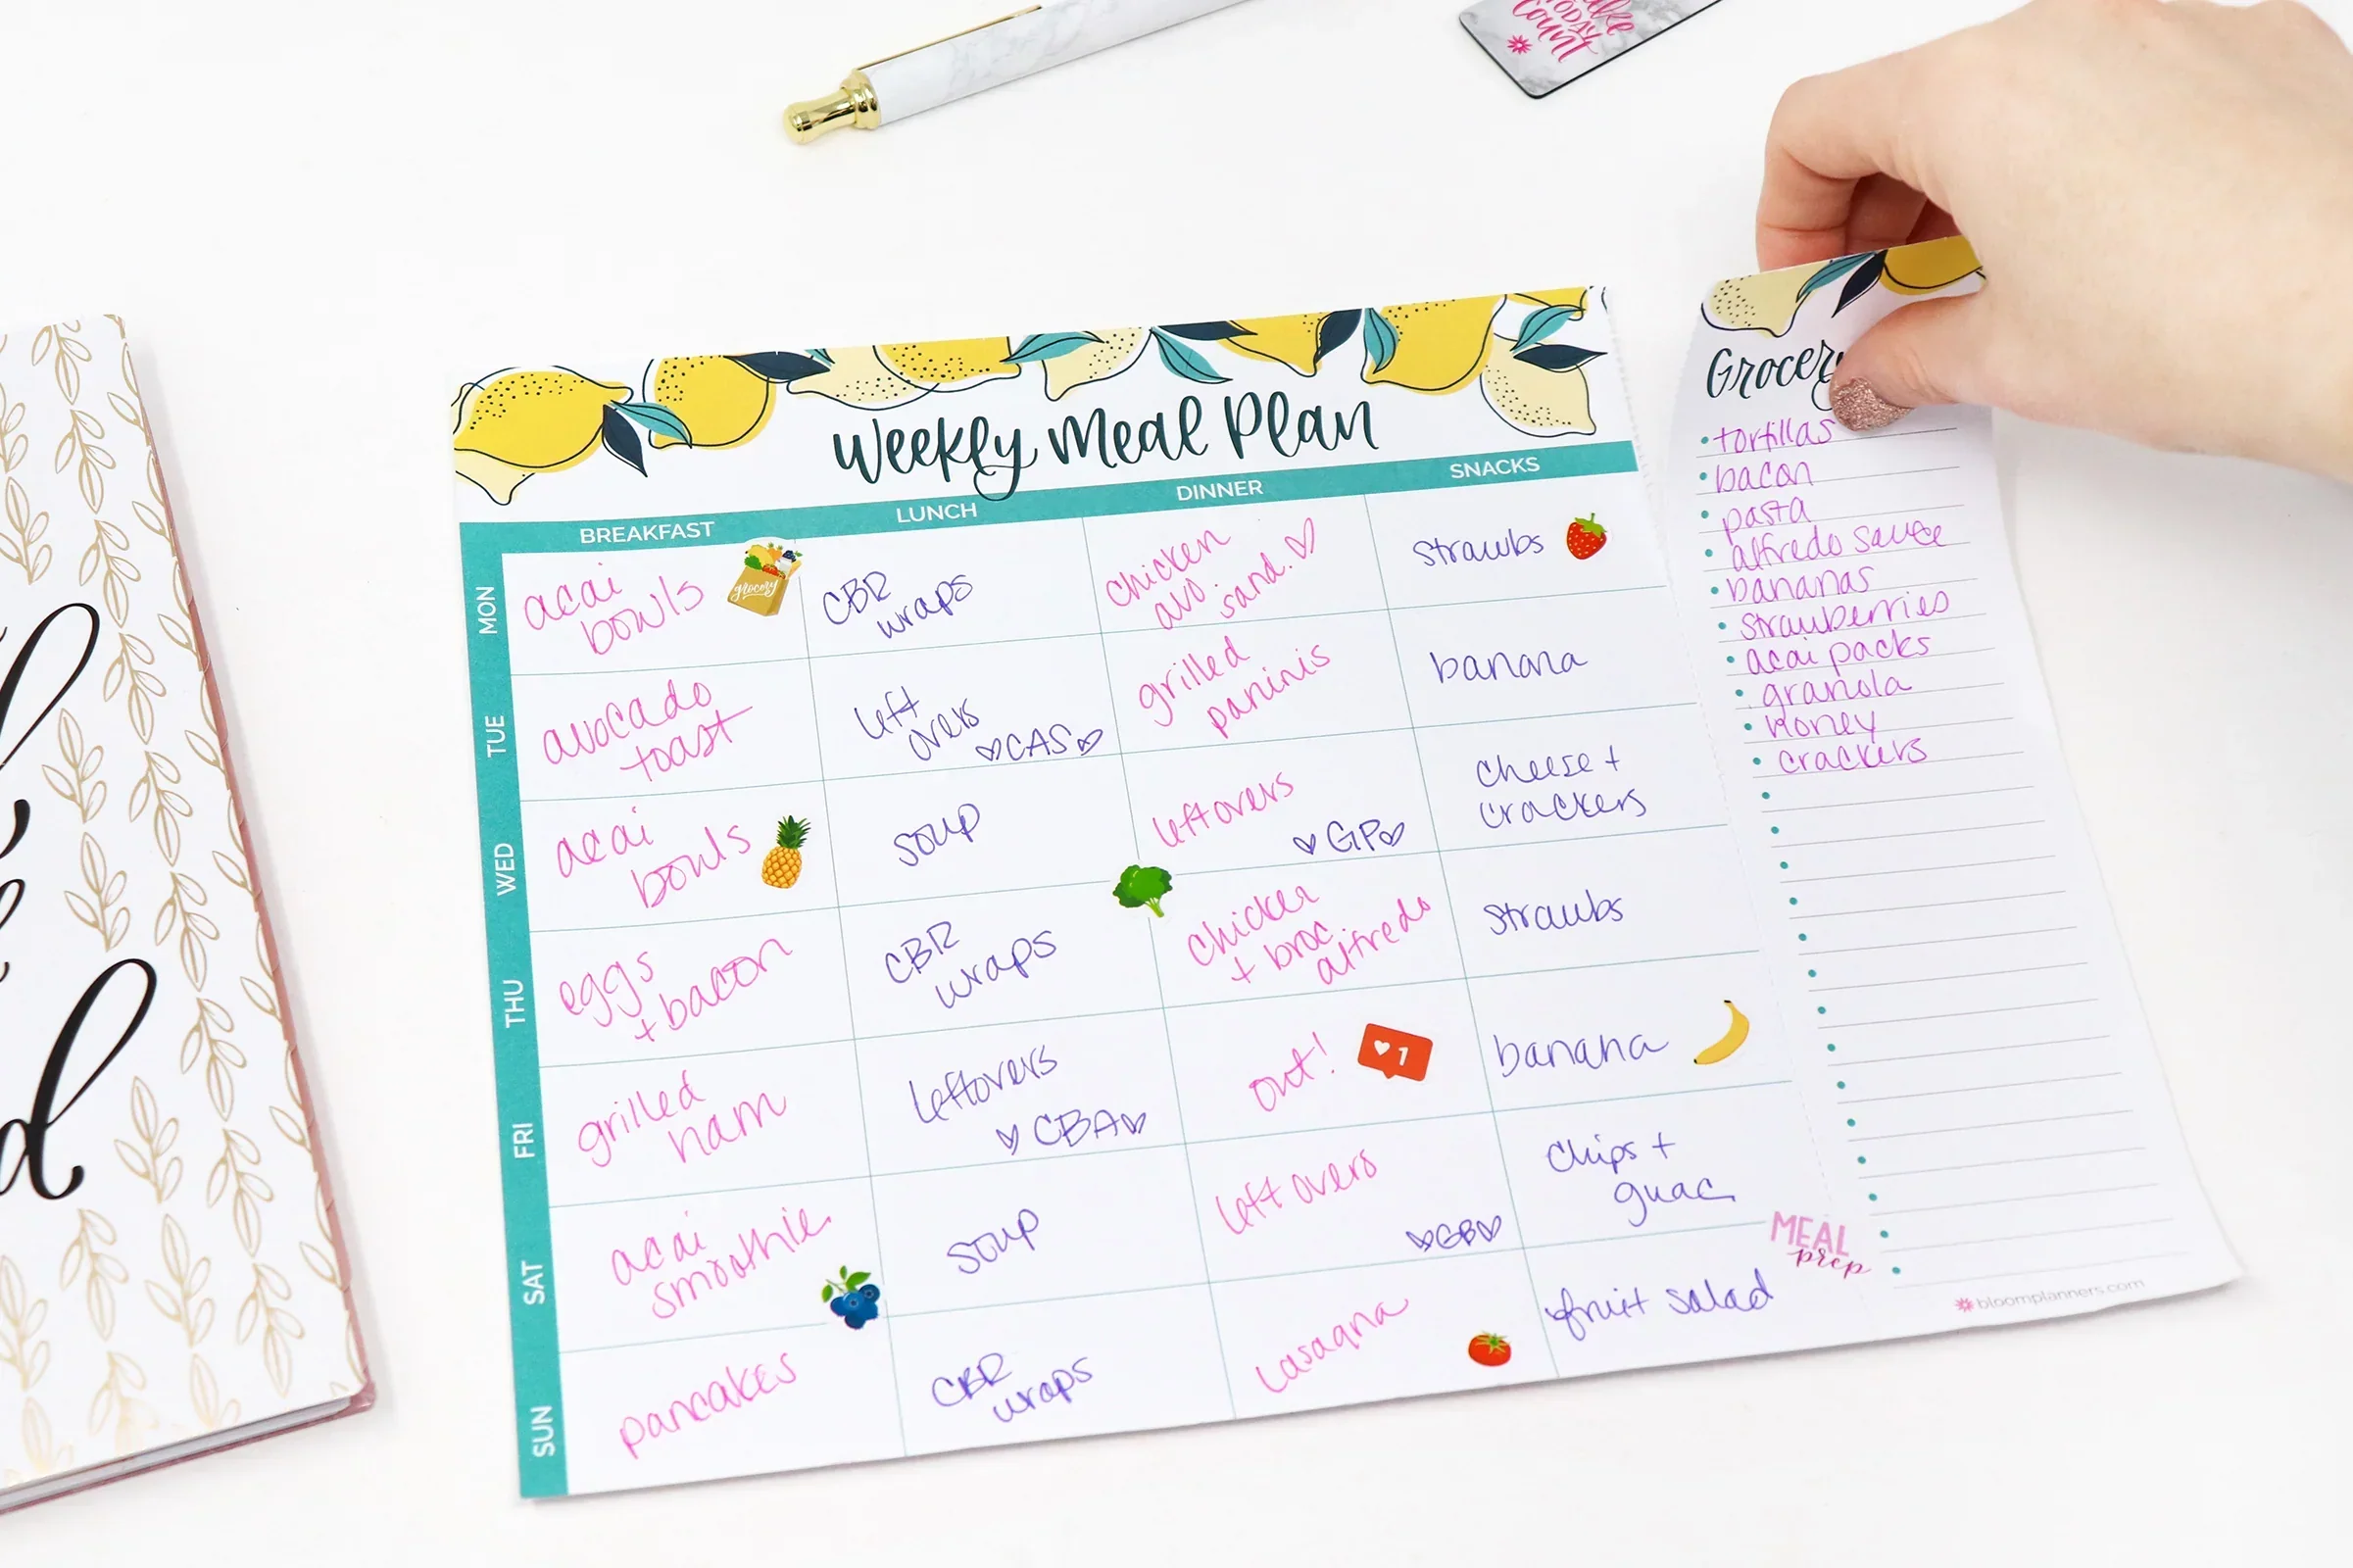 ake
TODAY
Count
Weekly Meal Plan
BREAKFAST
LUNCH
DINNER
SNACKS
MON
acai
bowls
grocery
CBR
wraps
chicken
avo.
sand.
strawbs
TUE
avocado
toast
left
overs
CAS
grilled
paninis
banana
WED
acai
bowls
soup
leftovers
GP
cheese +
crackers
THU
eggs
+ bacon
CBR
wraps
chicken
+ broc
alfredo
strawbs
FRI
grilled
ham
leftovers
CBA
out!
1
banana
SAT
acai
smoothie
soup
left overs
GB
chips +
guac
SUN
pancakes
CBR
wraps
lasagna
fruit salad
MEAL
prep
Grocery
tortillas
bacon
pasta
alfredo sauce
bananas
strawberries
acai packs
granola
honey
crackers
bloomplanners.com
d